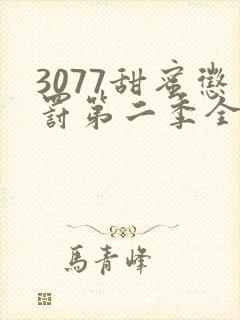 3077甜蜜懲
罰第二季全
馬青峰